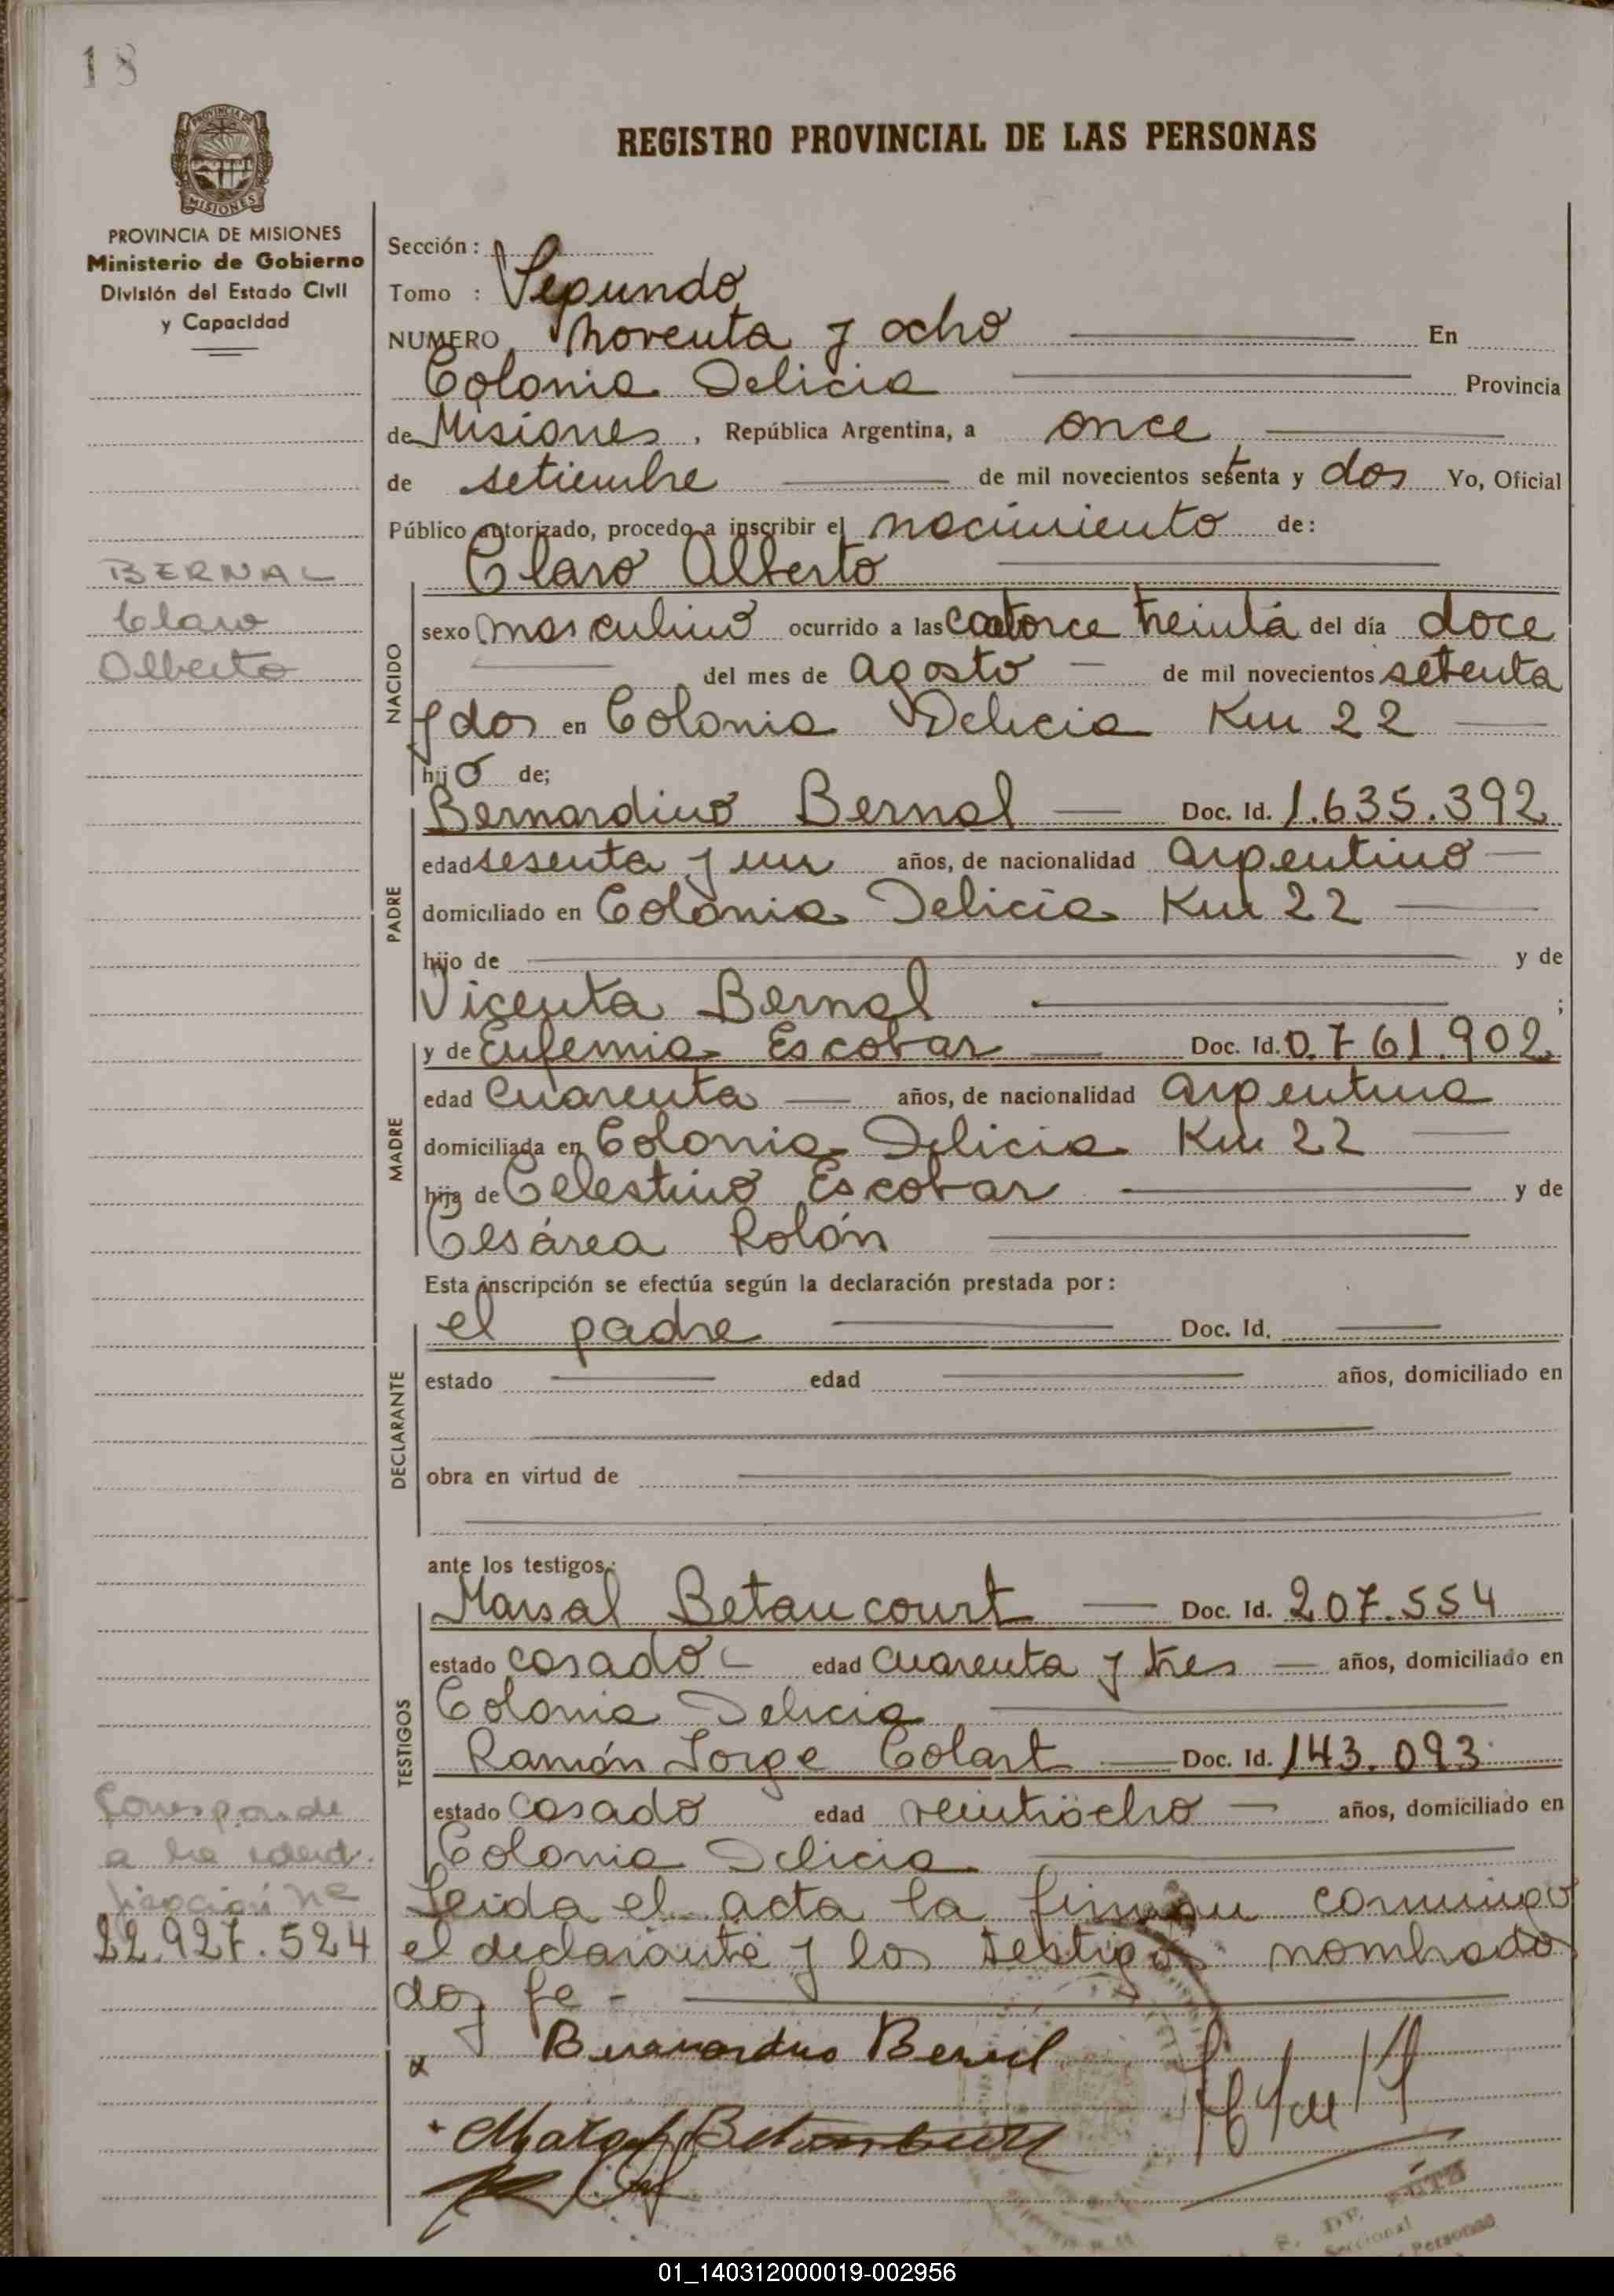 18
PROVINCIA DE MISIONES
PROVINCIA DE MISIONES
Ministerio de Gobierno
División del Estado Civil
y Capacidad
REGISTRO PROVINCIAL DE LAS PERSONAS
Sección :
Tomo : Segundo
NUMERO noventa y ocho En
Colonia Delicia Provincia
de Misiones, República Argentina, a once
de setiembre de mil novecientos setenta y dos Yo, Oficial
Público autorizado, procedo a inscribir el nacimiento de:
Claro Alberto
BERNAL
Claro
Alberto
NACIDO
sexo masculino ocurrido a las catorce treinta del día doce
del mes de agosto de mil novecientos setenta
y dos en Colonia Delicia Km 22
hijo de;
PADRE
Bernardino Bernal Doc. Id. 1.635.392
edad sesenta y un años, de nacionalidad argentino
domiciliado en Colonia Delicia Km 22
hijo de y de
Vicenta Bernal ;
MADRE
y de Eufemia Escobar Doc. Id. 0.761.902
edad cuarenta años, de nacionalidad argentina
domiciliada en Colonia Delicia Km 22
hija de Celestino Escobar y de
Cesárea Rolón
Esta inscripción se efectúa según la declaración prestada por:
DECLARANTE
el padre Doc. Id.
estado edad años, domiciliado en
obra en virtud de
ante los testigos:
TESTIGOS
Marsal Betancourt Doc. Id. 207.554
estado casado edad cuarenta y tres años, domiciliado en
Colonia Delicia
Ramón Jorge Colart Doc. Id. 143.093
estado casado edad veintiocho años, domiciliado en
Colonia Delicia
Corresponde
a la identi
ficación Nº
22.927.524
Leida el acta la firman conmigo
el declarante y los testigos nombrado
doy fe -
Bernardino Bernal
Seccional
Personas
01_140312000019-002956